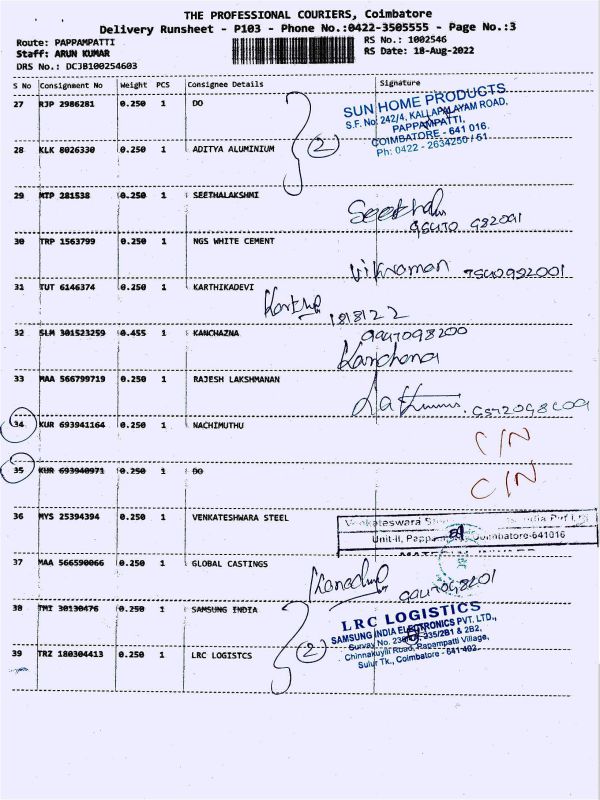 THE PROFESSIONAL COURIERS, Coimbatore
Delivery Runsheet - P103 - Phone No.:0422-3505555 - Page No.:3
Route: PAPPAMPATTI RS No.: 1002546
Staff: ARUN KUMAR RS Date: 18-Aug-2022
DRS No.: DCJB100254603
S No Consignment No Weight PCS Consignee Details Signature
27 RJP 2986281 0.250 1 DO
SUN HOME PRODUCTS
S.F. No. 242/4, KALLAPALAYAM ROAD,
PAPPAMPATTI,
COIMBATORE - 641 016.
Ph: 0422 - 2634250 / 51
2
28 KLK 8026330 0.250 1 ADITYA ALUMINIUM
29 MTP 281538 0.250 1 SEETHALAKSHMI
30 TRP 1563799 0.250 1 NGS WHITE CEMENT
31 TUT 6146374 0.250 1 KARTHIKADEVI
32 SLM 301523259 0.455 1 KANCHAZNA
Kanchana
33 MAA 566799719 0.250 1 RAJESH LAKSHMANAN
34 KUR 693941164 0.250 1 NACHIMUTHU
C/N
35 KUR 693940971 0.250 1 DO
C/N
36 MYS 25394394 0.250 1 VENKATESHWARA STEEL
37 MAA 566590066 0.250 1 GLOBAL CASTINGS
38 TMI 30130476 0.250 1 SAMSUNG INDIA
LRC LOGISTICS
SAMSUNG INDIA ELECTRONICS PVT. LTD.,
Chinnakuyili Road, Papampatti Village,
Sulur Tk., Coimbatore - 641 402.
2
39 TRZ 180304413 0.250 1 LRC LOGISTCS